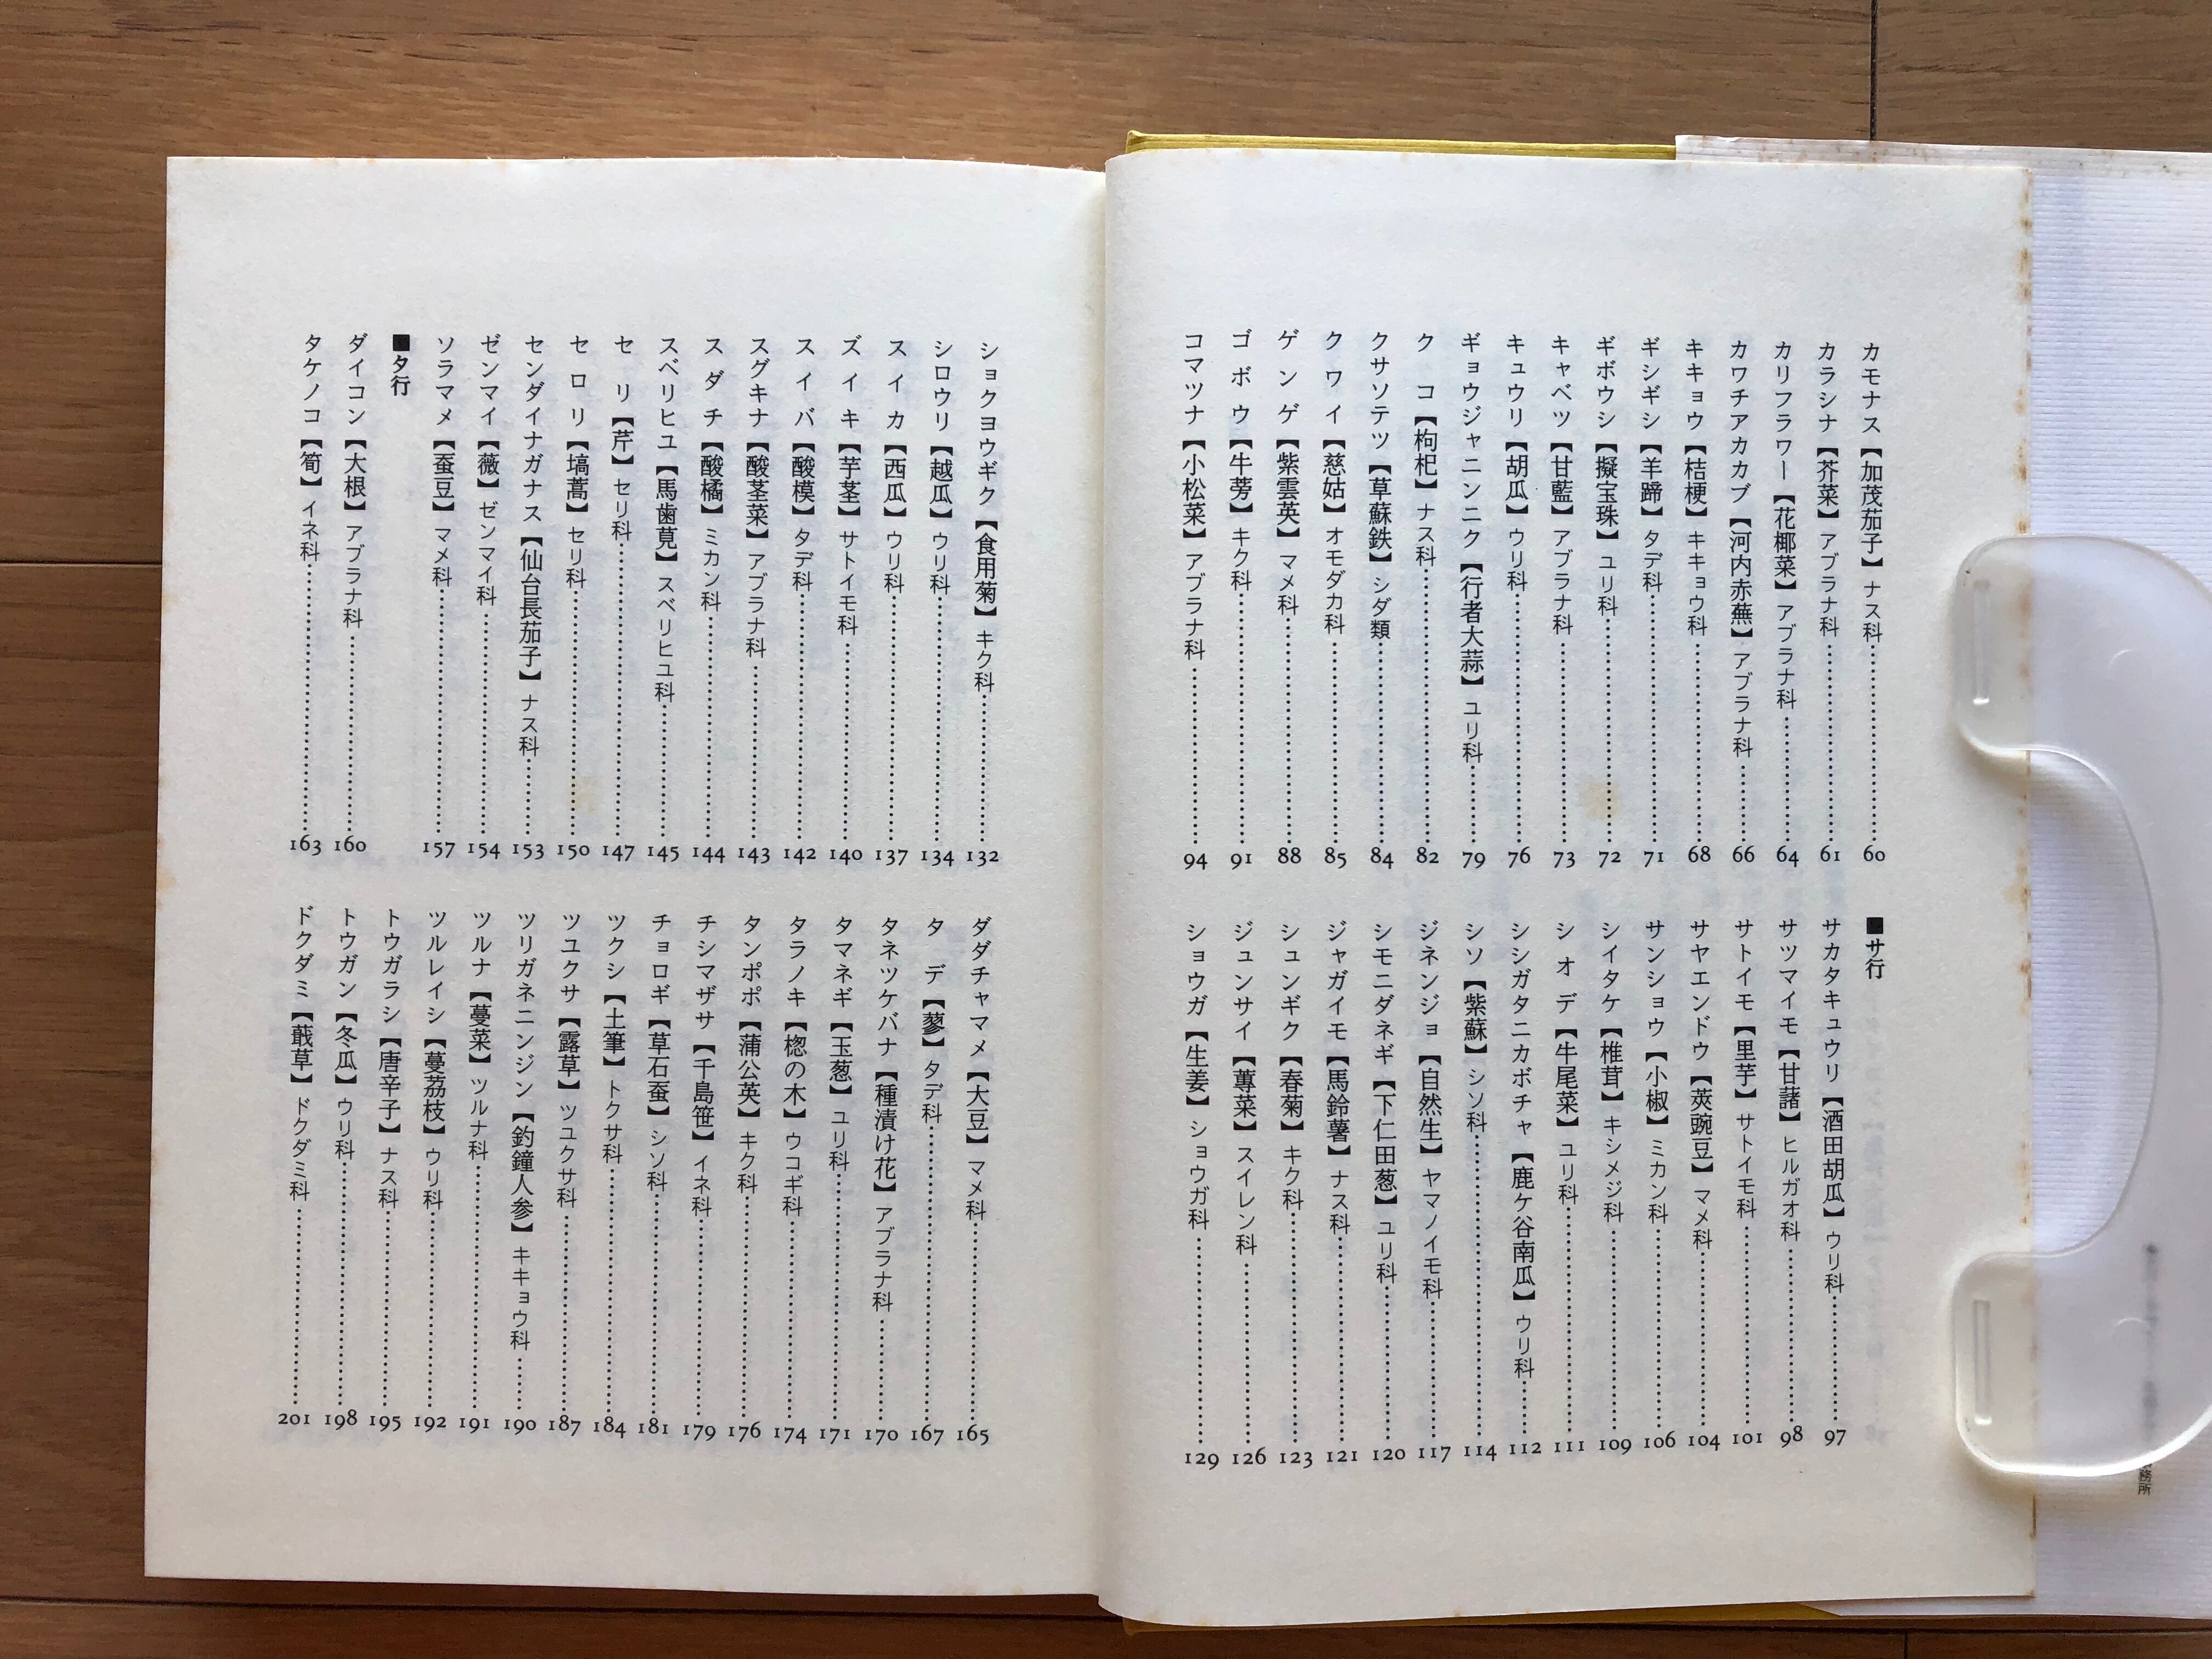 カモナス【加茂茄子】ナス科……60
カラシナ【芥菜】アブラナ科……61
カリフラワー【花椰菜】アブラナ科……64
カワチアカカブ【河内赤蕪】アブラナ科……66
キキョウ【桔梗】キキョウ科……68
ギシギシ【羊蹄】タデ科……71
ギボウシ【擬宝珠】ユリ科……72
キャベツ【甘藍】アブラナ科……73
キュウリ【胡瓜】ウリ科……76
ギョウジャニンニク【行者大蒜】ユリ科……79
クコ【枸杞】ナス科……82
クサソテツ【草蘇鉄】シダ類……84
クワイ【慈姑】オモダカ科……85
ゲンゲ【紫雲英】マメ科……88
ゴボウ【牛蒡】キク科……91
コマツナ【小松菜】アブラナ科……94
■サ行
サカタキュウリ【酒田胡瓜】ウリ科……97
サツマイモ【甘藷】ヒルガオ科……98
サトイモ【里芋】サトイモ科……101
サヤエンドウ【莢豌豆】マメ科……104
サンショウ【小椒】ミカン科……106
シイタケ【椎茸】キシメジ科……109
シオデ【牛尾菜】ユリ科……111
シシガタニカボチャ【鹿ケ谷南瓜】ウリ科……112
シソ【紫蘇】シソ科……114
ジネンジョ【自然生】ヤマノイモ科……117
シモニダネギ【下仁田葱】ユリ科……120
ジャガイモ【馬鈴薯】ナス科……121
シュンギク【春菊】キク科……123
ジュンサイ【蓴菜】スイレン科……126
ショウガ【生姜】ショウガ科……129
ショクヨウギク【食用菊】キク科……132
シロウリ【越瓜】ウリ科……134
スイカ【西瓜】ウリ科……137
ズイキ【芋茎】サトイモ科……140
スイバ【酸模】タデ科……142
スグキナ【酸茎菜】アブラナ科……143
スダチ【酸橘】ミカン科……144
スベリヒユ【馬歯莧】スベリヒユ科……145
セリ【芹】セリ科……147
セロリ【塙蒿】セリ科……150
センダイナガナス【仙台長茄子】ナス科……153
ゼンマイ【薇】ゼンマイ科……154
ソラマメ【蚕豆】マメ科……157
■タ行
ダイコン【大根】アブラナ科……160
タケノコ【筍】イネ科……163
ダダチャマメ【大豆】マメ科……165
タデ【蓼】タデ科……167
タネツケバナ【種漬け花】アブラナ科……170
タマネギ【玉葱】ユリ科……171
タラノキ【楤の木】ウコギ科……174
タンポポ【蒲公英】キク科……176
チシマザサ【千島笹】イネ科……179
チョロギ【草石蚕】シソ科……181
ツクシ【土筆】トクサ科……184
ツユクサ【露草】ツユクサ科……187
ツリガネニンジン【釣鐘人参】キキョウ科……190
ツルナ【蔓菜】ツルナ科……191
ツルレイシ【蔓茘枝】ウリ科……192
トウガラシ【唐辛子】ナス科……195
トウガン【冬瓜】ウリ科……198
ドクダミ【蕺草】ドクダミ科……201
務所